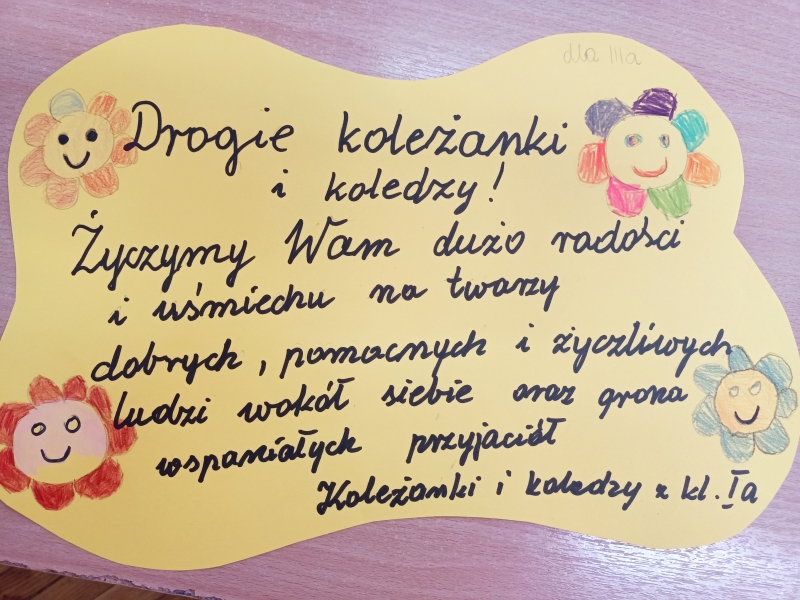 dla IIIa
Drogie koleżanki
i koledzy!
Życzymy Wam dużo radości
i uśmiechu na twarzy
dobrych, pomocnych i życzliwych
ludzi wokół siebie oraz grona
wspaniałych przyjaciół
Koleżanki i koledzy z kl. Ia